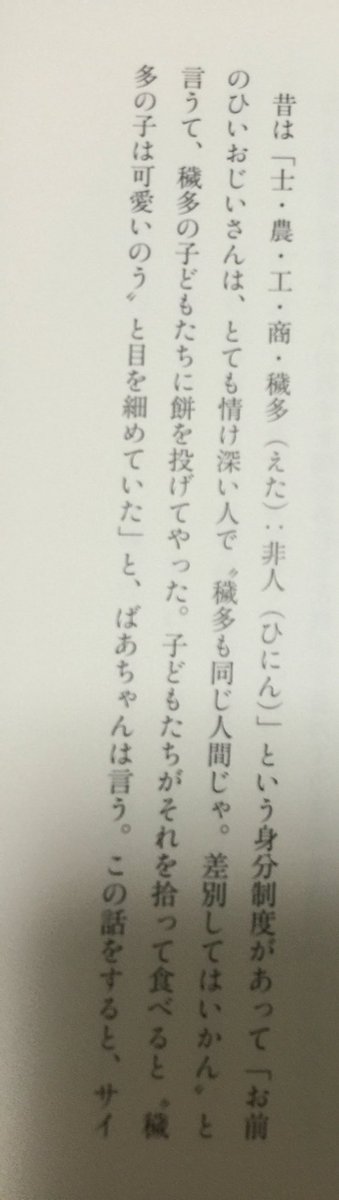 昔は「士・農・工・商・穢多（えた）：非人（ひにん）」という身分制度があって「お前
のひいおじいさんは、とても情け深い人で〝穢多も同じ人間じゃ。差別してはいかん〟と
言うて、穢多の子どもたちに餅を投げてやった。子どもたちがそれを拾って食べると〝穢
多の子は可愛いのう〟と目を細めていた」と、ばあちゃんは言う。この話をすると、サイ